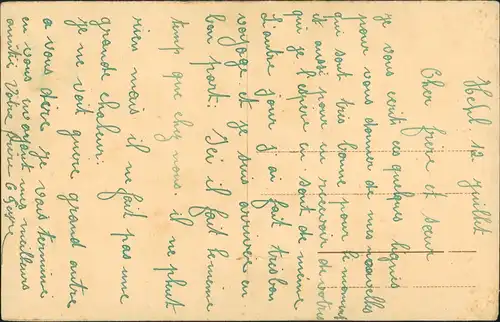 12 juillet
Cher frère et sœur
je vous ecrit ces quelques lignes
pour vous donner de mes nouvelles
qui sont tres bonne pour le moment
et aussi pour en recevoir de votres
qui je l'espère en sont de même
L'autre jour j'ai fait tres bon
voyage et je suis arrivée en
bon port. Ici il fait le même
temp que chez nous. il ne pleut
rien mais il ne fait pas une
grande chaleur.
je ne voit guere grand autre
a vous dire je vous termine
en vous envoyant mes meilleurs
amitiés Votre frère